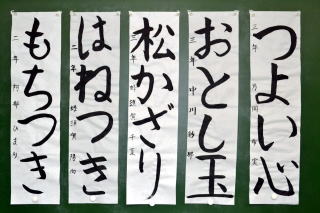 つよい心
三年
おとし玉
三年 中川
松かざり
年
はねつき
二年
もちつき
二年 阿部ひまり